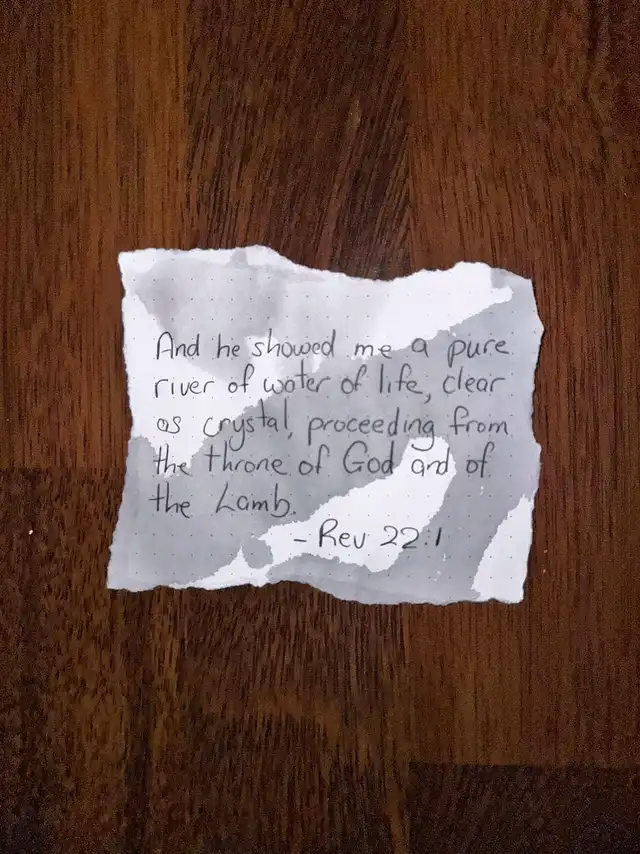 And he showed me a pure
river of water of life, clear
as crystal, proceeding from
the throne of God and of
the Lamb.
- Rev 22:1